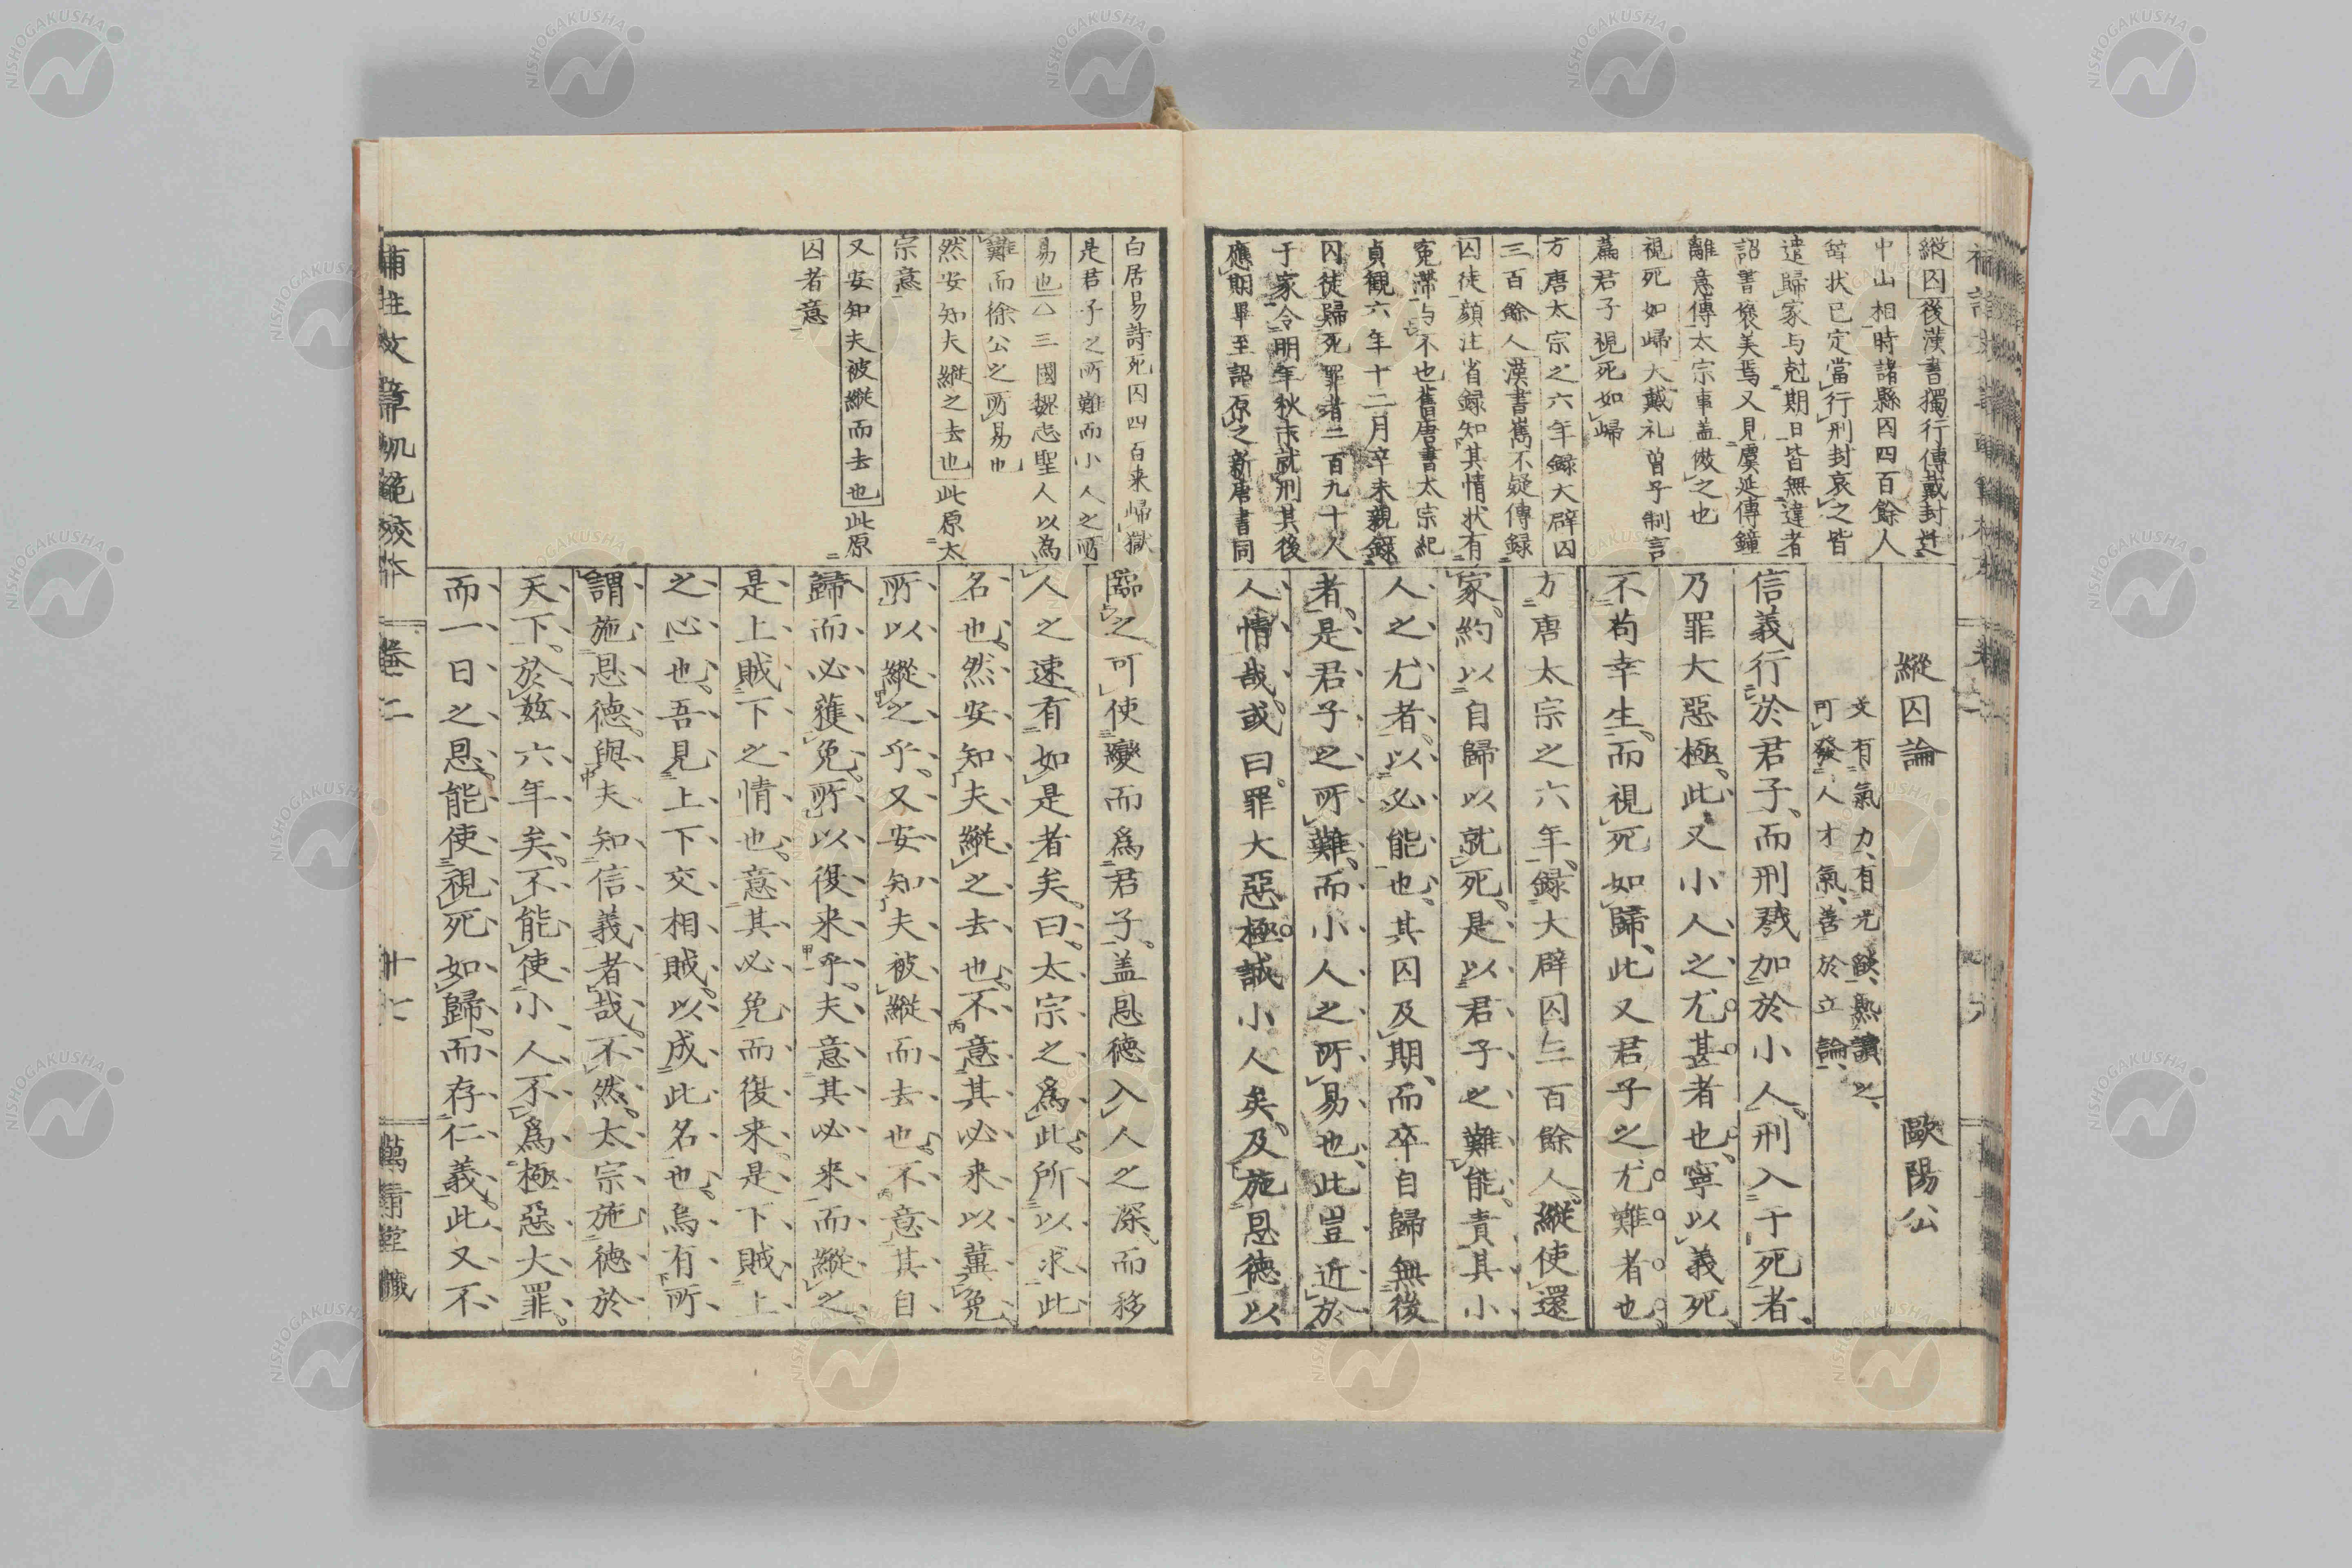 縱囚後漢書獨行傳戴封迁
中山相時諸縣囚四百餘人
辞状已定當行刑封哀之皆
遣歸家与尅期日皆無違者
詔書襃美焉又見虞延傳鐘
離意傳太宗事盖倣之也
視死如歸大戴礼曽子制言
篇君子視死如歸
方唐太宗之六年録大辟囚
三百餘人漢書雋不疑傳録
囚徒顔注省録知其情状有
寃滞与不也舊唐書太宗紀
貞觀六年十二月辛未親録
囚徒歸死罪者二百九十人
于家令明年秋末就刑其後
應期畢至詔原之新唐書同
縱囚論 歐陽公
文有氣力有光燄熟讀之
可發人才氣善於立論
信義行於君子而刑戮加於小人刑入于死者
乃罪大惡極此又小人之尤甚者也寧以義死
不苟幸生而視死如歸此又君子之尤難者也
方唐太宗之六年録大辟囚三百餘人縱使還
家約以自歸以就死是以君子之難能責其小
人之尤者以必能也其囚及期而卒自歸無後
者是君子之所難而小人之所易也此豈近於
人情哉或曰罪大惡極誠小人矣及施恩德以
白居易詩死囚四百来歸獄
是君子之所難而小人之所
易也○三國魏志聖人以為
難而徐公之所易也
然安知夫縱之去也此原太
宗意
又安知夫被縱而去也此原
囚者意
臨之可使變而爲君子盖恩德入人之深而移
人之速有如是者矣曰太宗之爲此所以求此
名也然安知夫縱之去也不意其必来以冀免
所以縱之乎又安知夫被縱而去也不意其自
歸而必獲免所以復来乎夫意其必来而縱之
是上賊下之情也意其必免而復来是下賊上
之心也吾見上下交相賊以成此名也烏有所
謂施恩德與夫知信義者哉不然太宗施德於
天下於玆六年矣不能使小人不爲極惡大罪
而一日之恩能使視死如歸而存仁義此又不
補註文章軌範校本 卷二 十七 萬青堂藏
NISHOGAKUSHA